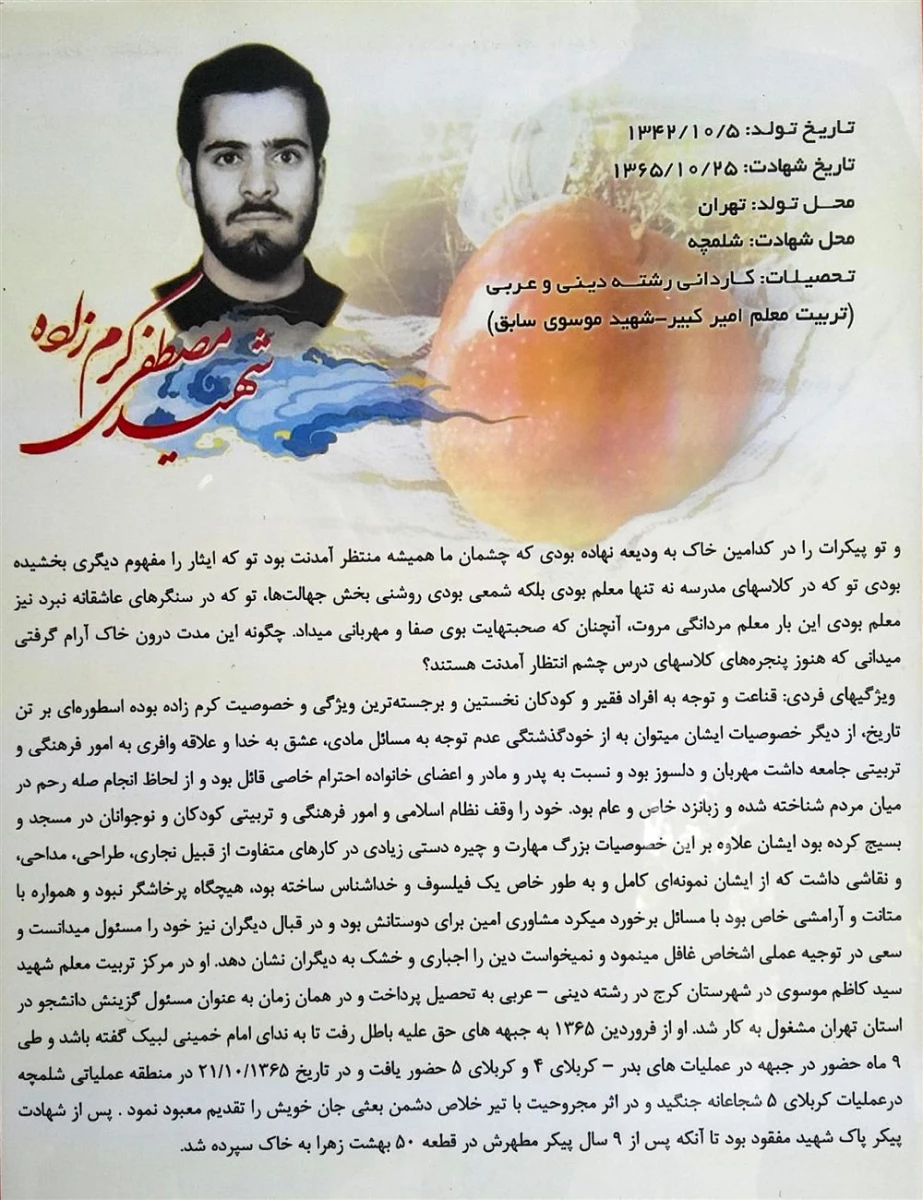 تاریخ تولد: ۱۳۴۲/۱۰/۵
تاریخ شهادت: ۱۳۶۵/۱۰/۲۵
محل تولد: تهران
محل شهادت: شلمچه
تحصیلات: کاردانی رشته دینی و عربی
(تربیت معلم امیر کبیر-شهید موسوی سابق)
شهید مصطفی کرم زاده
و تو پیکرات را در کدامین خاک به ودیعه نهاده بودی که چشمان ما همیشه منتظر آمدنت بود تو که ایثار را مفهوم دیگری بخشیده
بودی تو که در کلاسهای مدرسه نه تنها معلم بودی بلکه شمعی بودی روشنی بخش جهالت‌ها، تو که در سنگرهای عاشقانه نبرد نیز
معلم بودی این بار معلم مردانگی مروت، آنچنان که صحبتهایت بوی صفا و مهربانی میداد. چگونه این مدت درون خاک آرام گرفتی
میدانی که هنوز پنجره‌های کلاسهای درس چشم انتظار آمدنت هستند؟
ویژگیهای فردی: قناعت و توجه به افراد فقیر و کودکان نخستین و برجسته‌ترین ویژگی و خصوصیت کرم زاده بوده اسطوره‌ای بر تن
تاریخ، از دیگر خصوصیات ایشان میتوان به از خودگذشتگی عدم توجه به مسائل مادی، عشق به خدا و علاقه وافری به امور فرهنگی و
تربیتی جامعه داشت مهربان و دلسوز بود و نسبت به پدر و مادر و اعضای خانواده احترام خاصی قائل بود و از لحاظ انجام صله رحم در
میان مردم شناخته شده و زبانزد خاص و عام بود. خود را وقف نظام اسلامی و امور فرهنگی و تربیتی کودکان و نوجوانان در مسجد و
بسیج کرده بود ایشان علاوه بر این خصوصیات بزرگ مهارت و چیره دستی زیادی در کارهای متفاوت از قبیل نجاری، طراحی، مداحی،
و نقاشی داشت که از ایشان نمونه‌ای کامل و به طور خاص یک فیلسوف و خداشناس ساخته بود، هیچگاه پرخاشگر نبود و همواره با
متانت و آرامشی خاص بود با مسائل برخورد میکرد مشاوری امین برای دوستانش بود و در قبال دیگران نیز خود را مسئول میدانست و
سعی در توجیه عملی اشخاص غافل مینمود و نمیخواست دین را اجباری و خشک به دیگران نشان دهد. او در مرکز تربیت معلم شهید
سید کاظم موسوی در شهرستان کرج در رشته دینی – عربی به تحصیل پرداخت و در همان زمان به عنوان مسئول گزینش دانشجو در
استان تهران مشغول به کار شد. او از فروردین ۱۳۶۵ به جبهه های حق علیه باطل رفت تا به ندای امام خمینی لبیک گفته باشد و طی
۹ ماه حضور در جبهه در عملیات های بدر – کربلای ۴ و کربلای ۵ حضور یافت و در تاریخ ۲۱/۱۰/۱۳۶۵ در منطقه عملیاتی شلمچه
درعملیات کربلای ۵ شجاعانه جنگید و در اثر مجروحیت با تیر خلاص دشمن بعثی جان خویش را تقدیم معبود نمود . پس از شهادت
پیکر پاک شهید مفقود بود تا آنکه پس از ۹ سال پیکر مطهرش در قطعه ۵۰ بهشت زهرا به خاک سپرده شد.